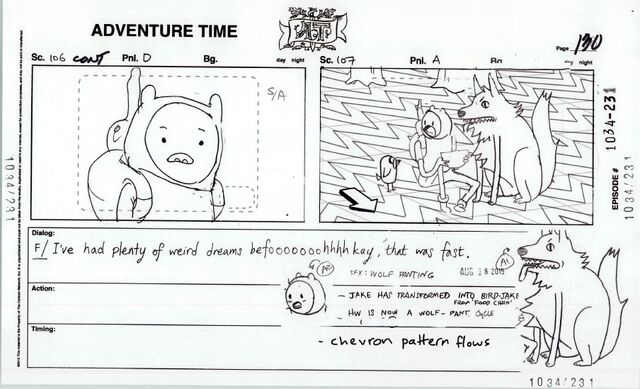 ADVENTURE TIME
Page 130
Sc. 106 CONT Pnl. D Bg. day night
Sc. 107 Pnl. A day night
S/A
1034-231
EPISODE #
1034/231
1034/231
Dialog:
F/ I've had plenty of weird dreams befooooooohhhh kay, that was fast.
SFX: WOLF PANTING
AUG 28 2015
A2
A1
Action:
- JAKE HAS TRANSFORMED INTO BIRD-JAKE
FROM "FOOD CHAIN"
- HW IS NOW A WOLF - PANT CYCLE
Timing:
- chevron pattern flows
1034/231